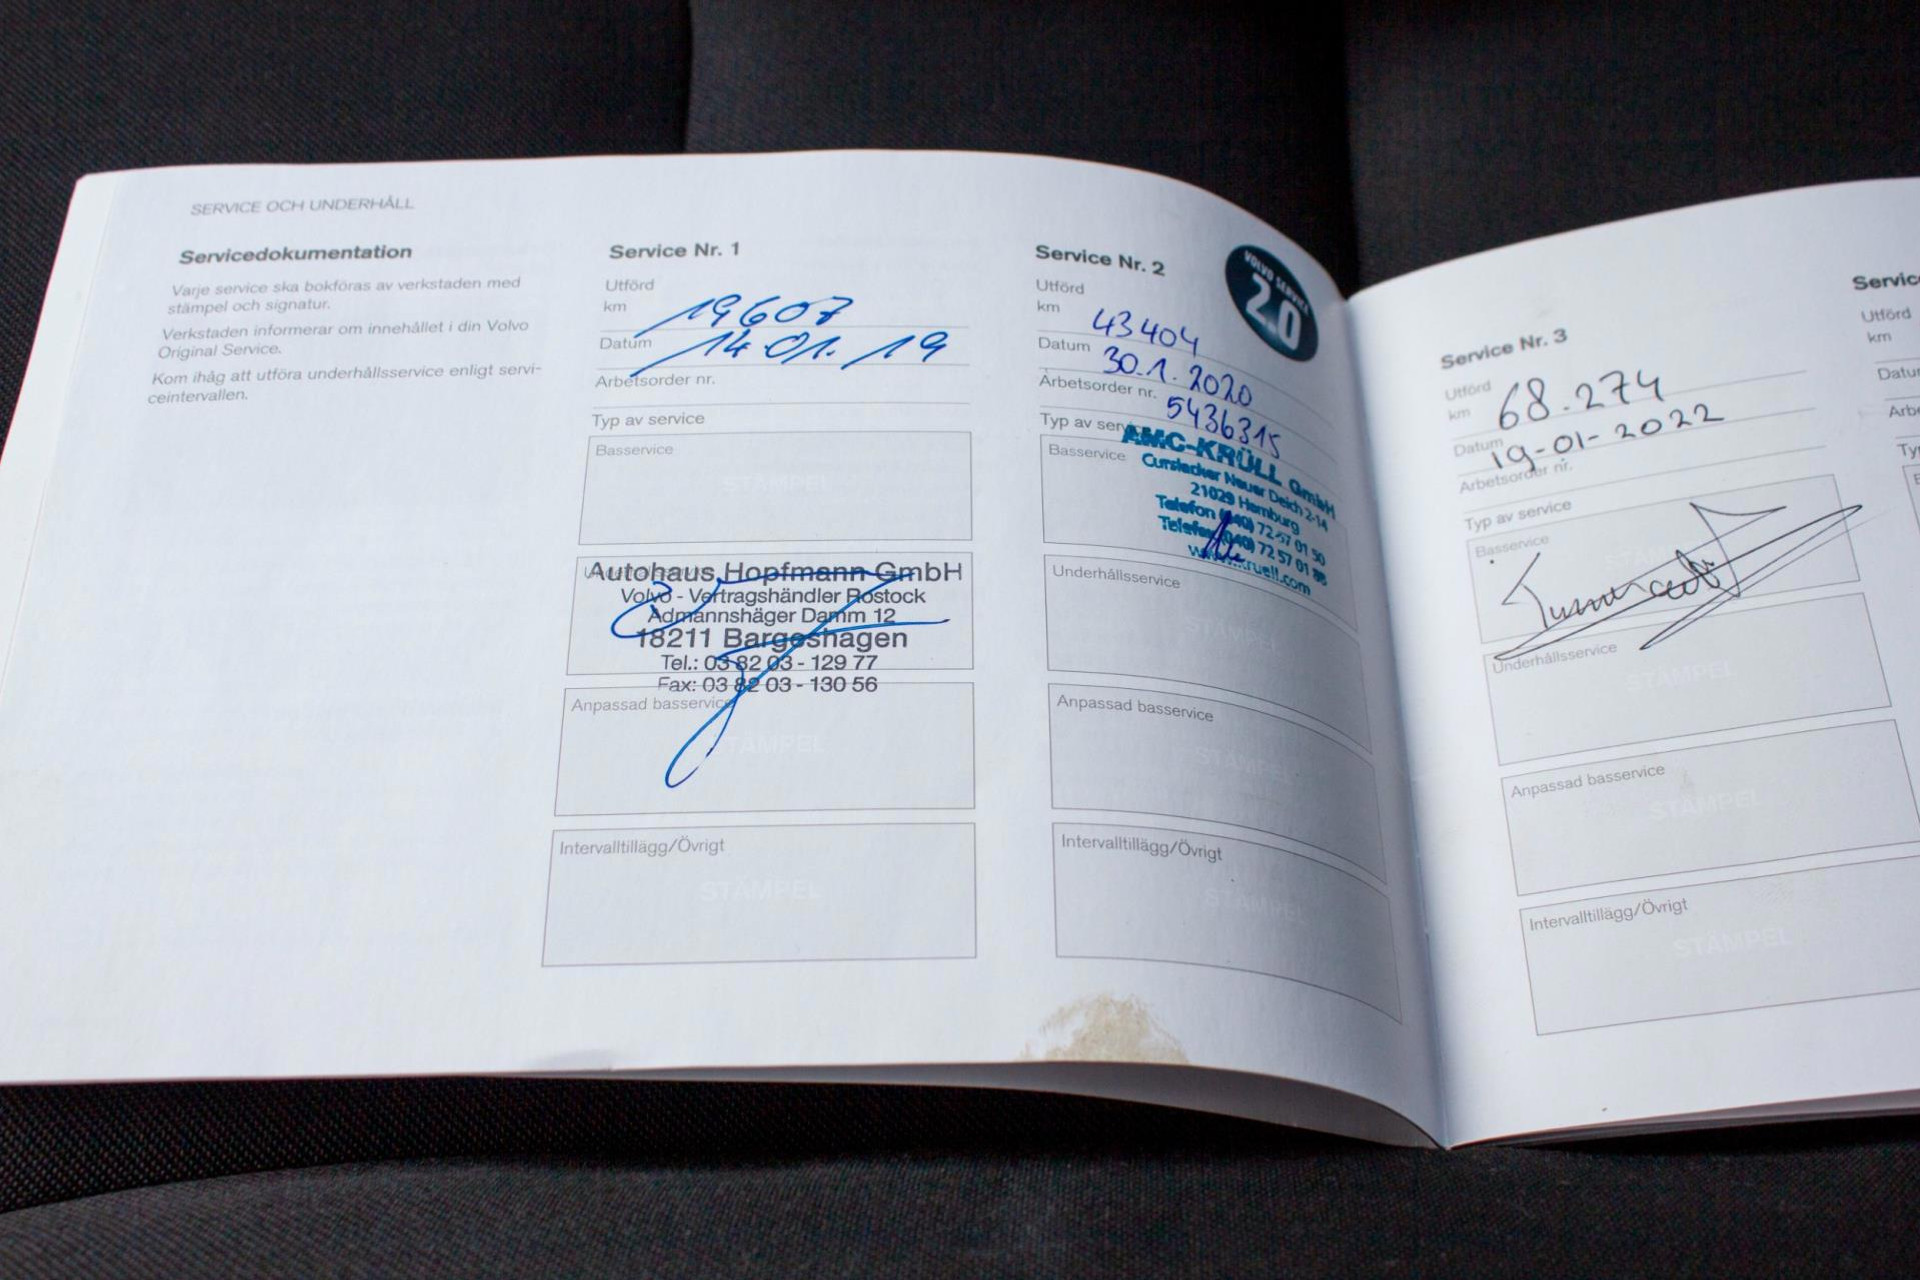 SERVICE OCH UNDERHÅLL
Servicedokumentation
Varje service ska bokföras av verkstaden med
stämpel och signatur.
Verkstaden informerar om innehållet i din Volvo
Original Service.
Kom ihåg att utföra underhållsservice enligt servi-
ceintervallen.
Service Nr. 1
Utförd
km 19607
Datum 14.01.19
Arbetsorder nr.
Typ av service
Basservice
STÄMPEL
Autohaus Hopfmann GmbH
Volvo - Vertragshändler Rostock
Admannshäger Damm 12
18211 Bargeshagen
Tel.: 03 82 03 - 129 77
Fax: 03 82 03 - 130 56
Anpassad basservice
STÄMPEL
Intervalltillägg/Övrigt
STÄMPEL
Service Nr. 2
VOLVO SERVICE
2.0
Utförd
km 43404
Datum 30.1.2020
Arbetsorder nr. 5436315
Typ av service
Basservice
AMC-KRÜLL GmbH
Curslacker Neuer Deich 2-14
21029 Hamburg
Telefon (040) 72 57 01 50
Telefax (040) 72 57 01
Underhållsservice
STÄMPEL
Anpassad basservice
STÄMPEL
Intervalltillägg/Övrigt
STÄMPEL
Service Nr. 3
Utförd
km 68.274
Datum 19-01-2022
Arbetsorder nr.
Typ av service
Basservice
STÄMPEL
Underhållsservice
STÄMPEL
Anpassad basservice
STÄMPEL
Intervalltillägg/Övrigt
STÄMPEL
Servic
Utförd
km
Datu
Arbe
Typ